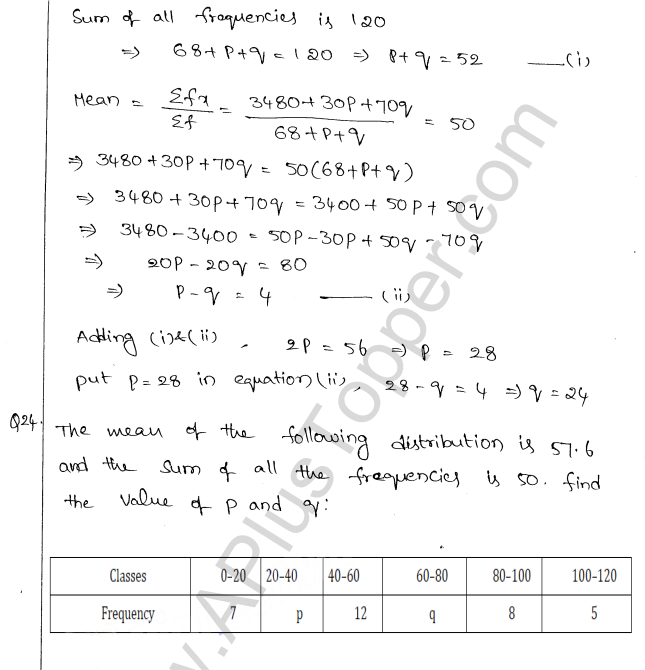 Sum of all frequencies is 120
⇒ 68+P+q = 120 ⇒ P+q = 52 —(i)
Mean = Σfx/Σf = 3480+30P+70q/68+P+q = 50
⇒ 3480+30P+70q = 50(68+P+q)
⇒ 3480+30P+70q = 3400+50P+50q
⇒ 3480-3400 = 50P-30P+50q-70q
⇒ 20P-20q = 80
⇒ P-q = 4 —(ii)
Adding (i)&(ii), 2P = 56 ⇒ P = 28
put P=28 in equation (ii), 28-q = 4 ⇒ q = 24
Q24. The mean of the following distribution is 57.6
and the sum of all the frequencies is 50. find
the value of p and q:
Classes 0-20 20-40 40-60 60-80 80-100 100-120
Frequency 7 p 12 q 8 5
www.APlusTopper.com